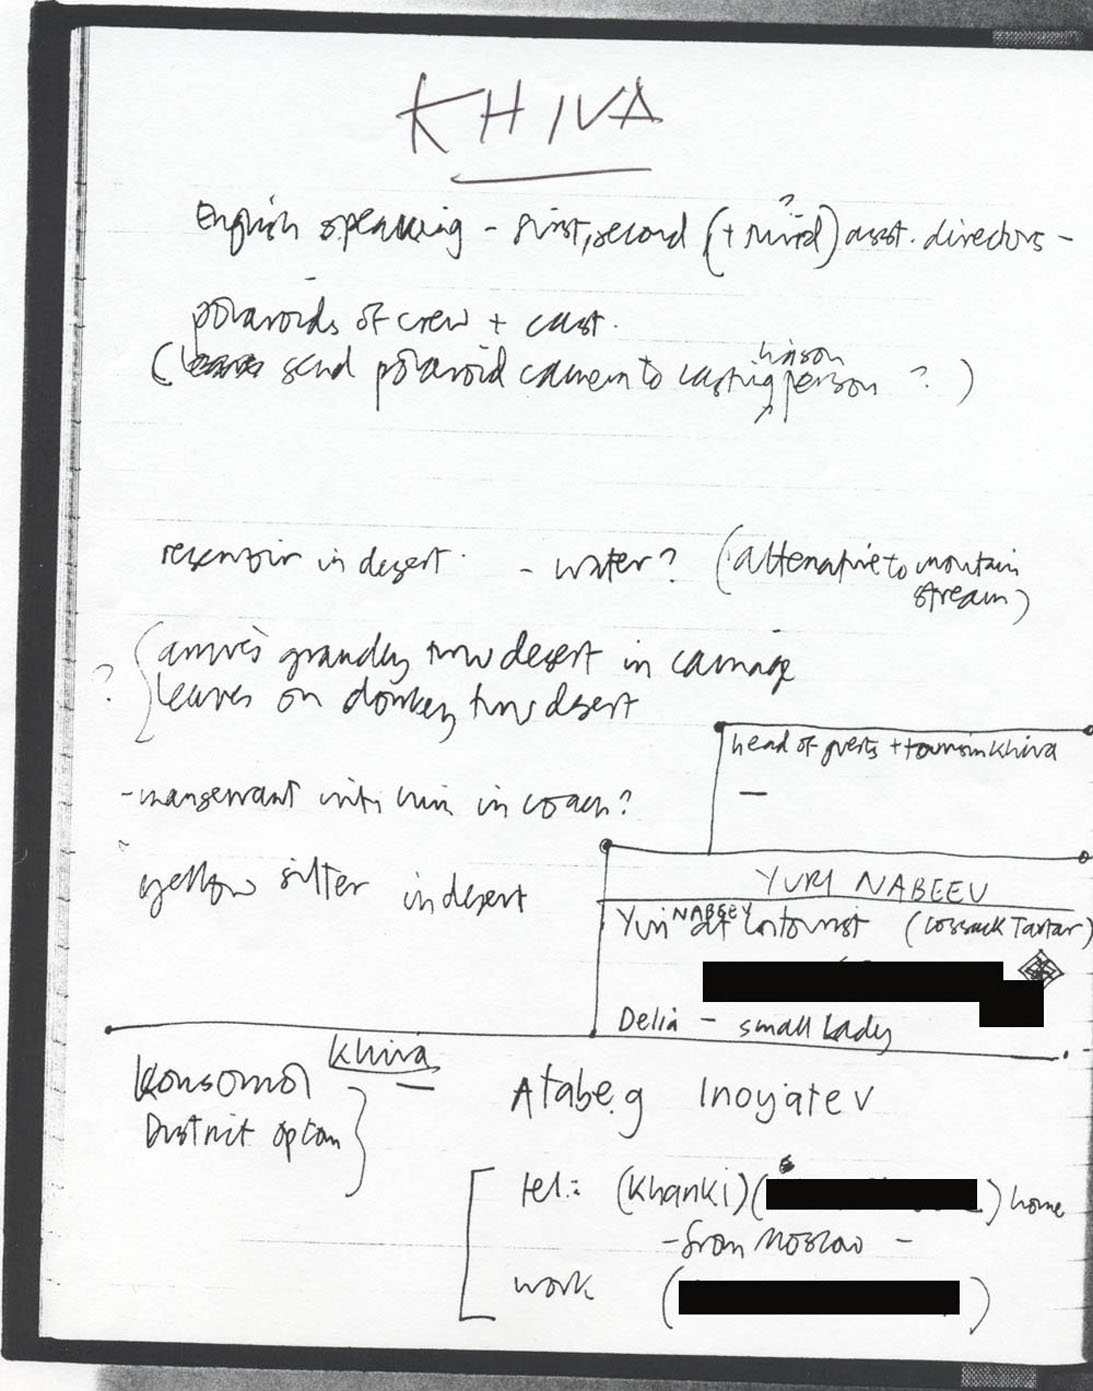 KHIVA
English speaking - first, second (+ third?) asst. directors -
polaroids of crew + cast.
( send polaroid camera to casting liason person ? )
reservoir in desert. - water? (alternative to mountain
stream)
? { arrives grandly thru desert in carriage
leaves on donkey thru desert
head of guests + tourism Khiva
-
- manservant with him in coach?
YURI NABEEV
yellow silter in desert
Yuri NABEEV at Intourist (Cossack Tartar)
Delia - small lady
Khiva
Komsomol
District
Atabeg Inoyatev
tel.: (Khanki) ( ) home
- from Moscow -
work ( )